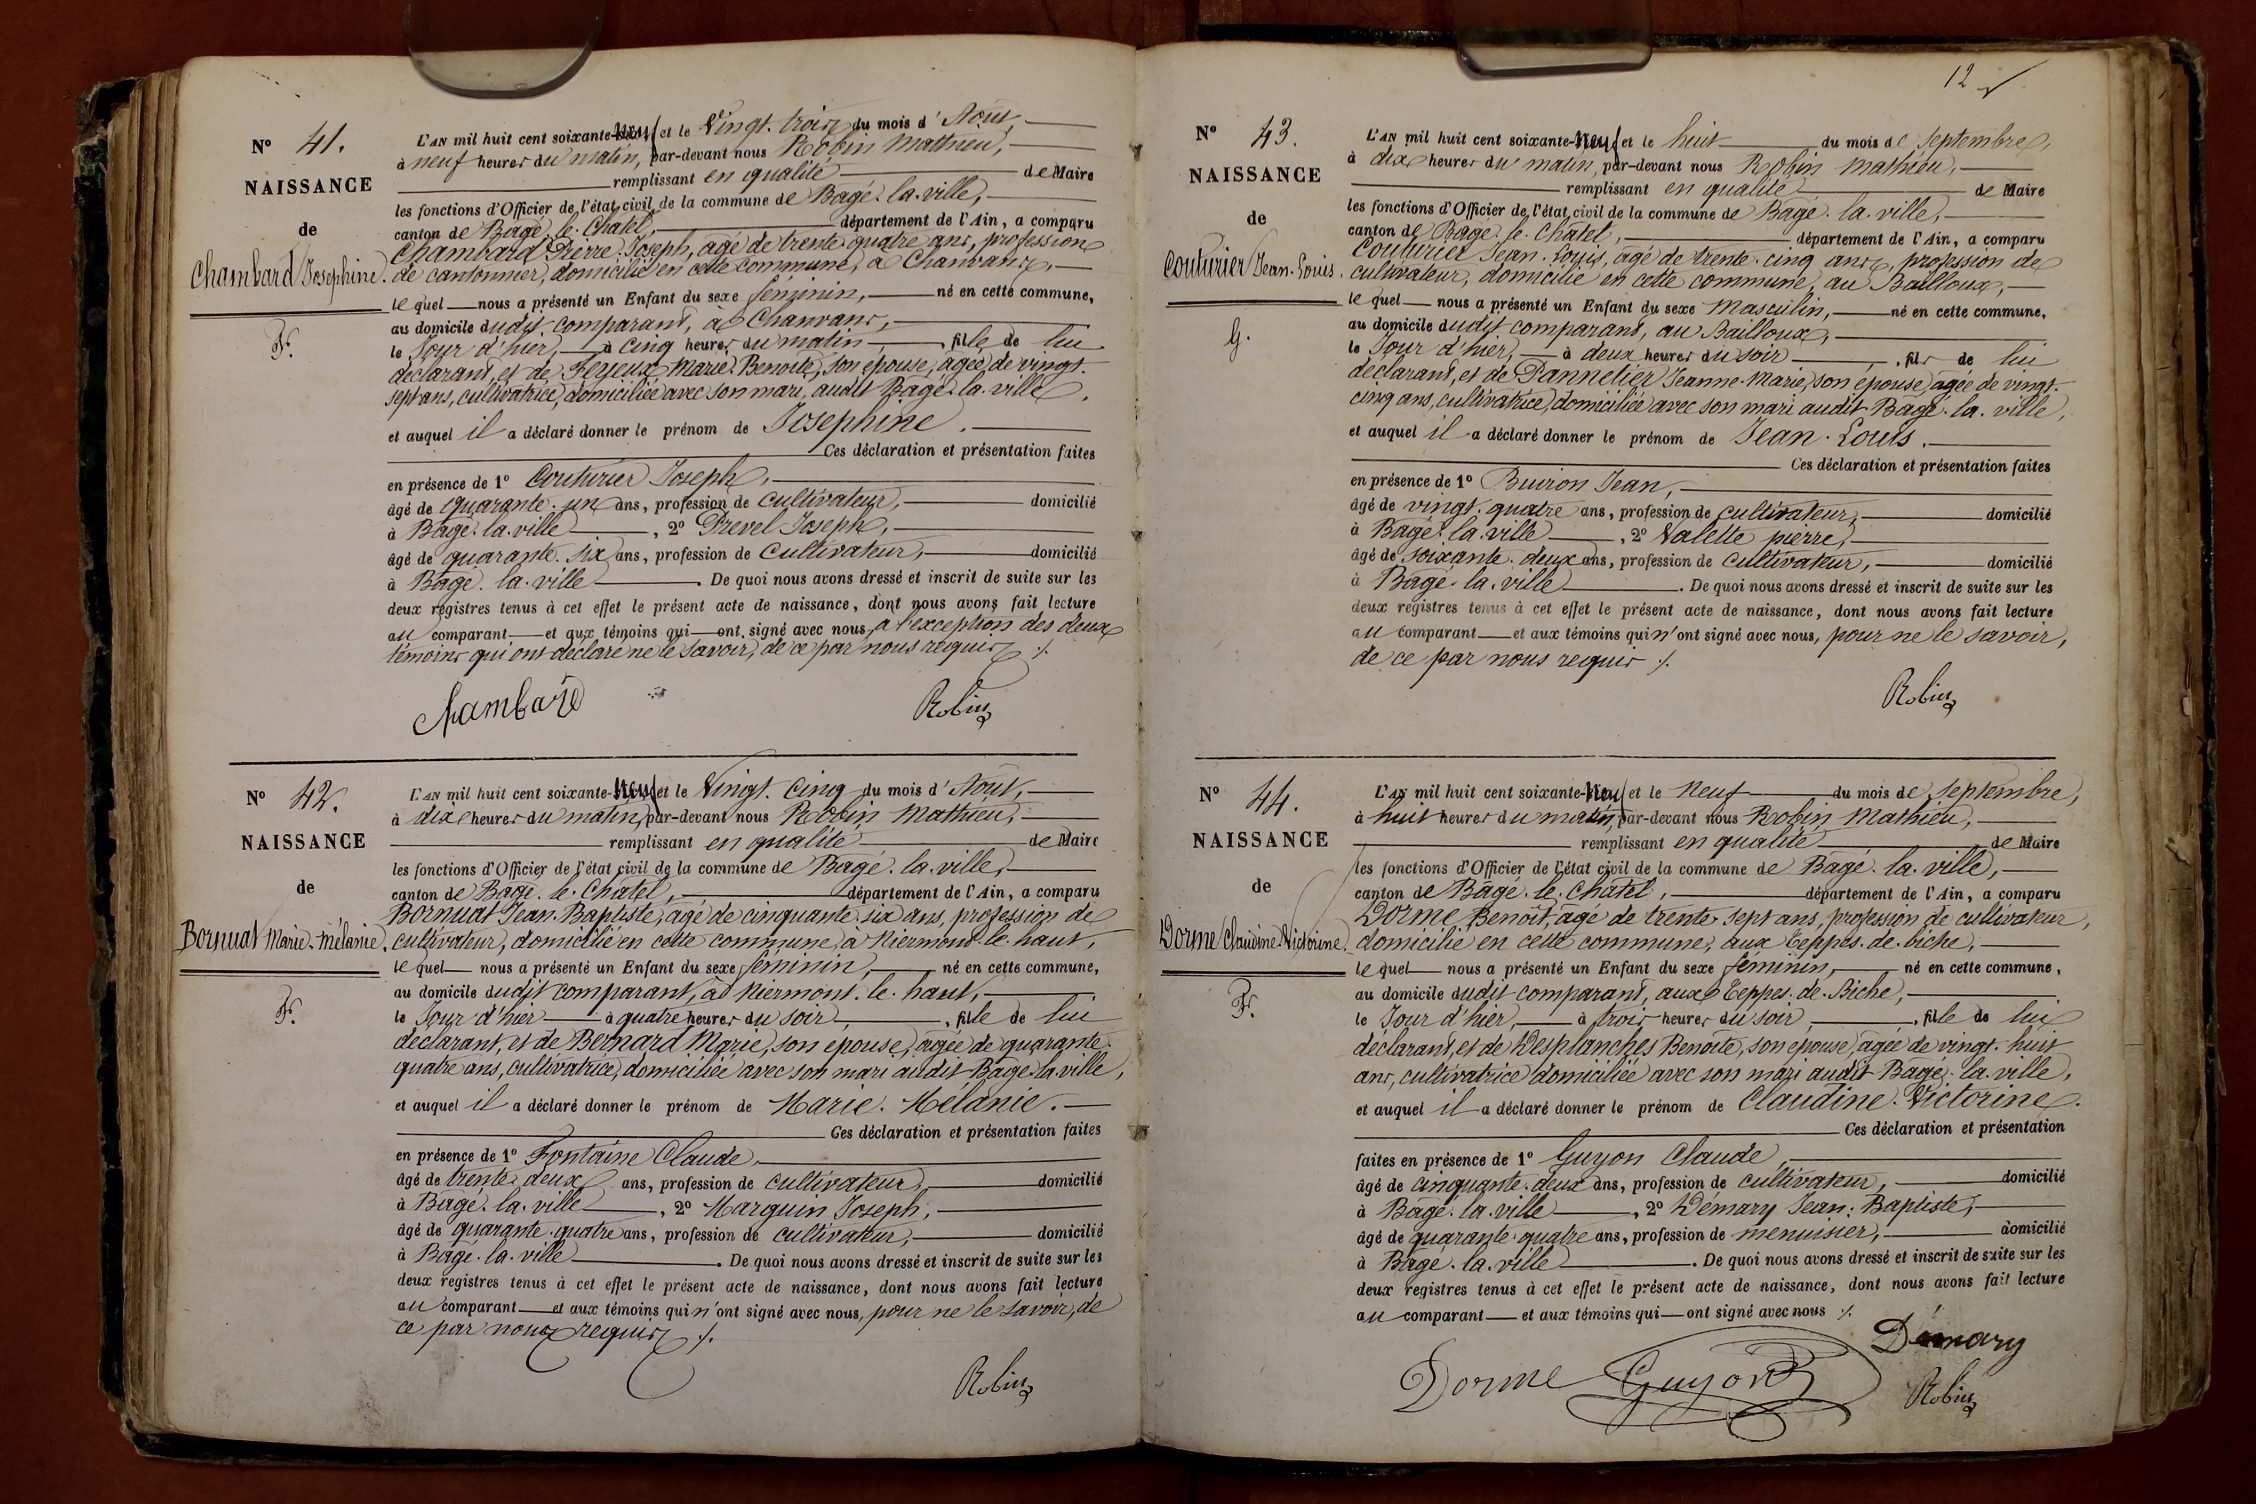 N° 41.
NAISSANCE
de
Chambard Josephine.
F.
L'AN mil huit cent soixante-neuf et le Vingt-trois du mois d'Août,
à neuf heures du matin, par-devant nous Robin Mathieu,
remplissant en qualité de Maire
les fonctions d'Officier de l'état civil de la commune de Bâgé-la-ville,
canton de Bâgé-le-Châtel, département de l'Ain, a comparu
Chambard Pierre-Joseph, âgé de trente-quatre ans, profession
de cantonnier, domicilié en cette commune, à Chanvans,
lequel nous a présenté un Enfant du sexe féminin, né en cette commune,
au domicile dudit comparant, à Chanvans,
le Jour d'hier, à cinq heures du matin, fille de lui
déclarant, et de Feyeux Marie-Benoite, son épouse, âgée de vingt-
sept ans, cultivatrice, domiciliée avec son mari, audit Bâgé-la-ville,
et auquel il a déclaré donner le prénom de Josephine.
Ces déclaration et présentation faites
en présence de 1° Couturier Joseph,
âgé de quarante-un ans, profession de cultivateur, domicilié
à Bâgé-la-ville, 2° Prevel Joseph,
âgé de quarante-six ans, profession de cultivateur, domicilié
à Bâgé-la-ville. De quoi nous avons dressé et inscrit de suite sur les
deux registres tenus à cet effet le présent acte de naissance, dont nous avons fait lecture
au comparant et aux témoins qui ont signé avec nous, à l'exception des deux
témoins qui ont déclaré ne le savoir, de ce par nous requis ./.
Chambard Robin
N° 42.
NAISSANCE
de
Bornuat Marie-Mélanie.
F.
L'AN mil huit cent soixante-neuf et le Vingt-cinq du mois d'Août,
à dix heures du matin, par-devant nous Robin Mathieu,
remplissant en qualité de Maire
les fonctions d'Officier de l'état civil de la commune de Bâgé-la-ville,
canton de Bâgé-le-Châtel, département de l'Ain, a comparu
Bornuat Jean-Baptiste, âgé de cinquante-six ans, profession de
cultivateur, domicilié en cette commune, à Niermont-le-haut,
lequel nous a présenté un Enfant du sexe féminin, né en cette commune,
au domicile dudit comparant, à Niermont-le-haut,
le Jour d'hier à quatre heures du soir, fille de lui
déclarant, et de Bernard Marie, son épouse, âgée de quarante-
quatre ans, cultivatrice, domiciliée avec son mari audit Bâgé-la-ville,
et auquel il a déclaré donner le prénom de Marie-Mélanie.
Ces déclaration et présentation faites
en présence de 1° Fontaine Claude,
âgé de trente-deux ans, profession de cultivateur, domicilié
à Bâgé-la-ville, 2° Marguin Joseph,
âgé de quarante-quatre ans, profession de cultivateur, domicilié
à Bâgé-la-ville. De quoi nous avons dressé et inscrit de suite sur les
deux registres tenus à cet effet le présent acte de naissance, dont nous avons fait lecture
au comparant et aux témoins qui n'ont signé avec nous, pour ne le savoir, de
ce par nous requis ./.
Robin
12
N° 43.
NAISSANCE
de
Couturier Jean-Louis.
G.
L'AN mil huit cent soixante-neuf et le huit du mois de septembre,
à dix heures du matin, par-devant nous Robin Mathieu,
remplissant en qualité de Maire
les fonctions d'Officier de l'état civil de la commune de Bâgé-la-ville,
canton de Bâgé-le-Châtel, département de l'Ain, a comparu
Couturier Jean-Louis, âgé de trente-cinq ans, profession de
cultivateur, domicilié en cette commune, au Bailloux,
lequel nous a présenté un Enfant du sexe Masculin, né en cette commune,
au domicile dudit comparant, au Bailloux,
le Jour d'hier, à deux heures du soir, fils de lui
déclarant, et de Pannetier Jeanne-Marie, son épouse, âgée de vingt-
cinq ans, cultivatrice, domiciliée avec son mari audit Bâgé-la-ville,
et auquel il a déclaré donner le prénom de Jean-Louis.
Ces déclaration et présentation faites
en présence de 1° Buiron Jean,
âgé de vingt-quatre ans, profession de cultivateur, domicilié
à Bâgé-la-ville, 2° Valette pierre,
âgé de soixante-deux ans, profession de cultivateur, domicilié
à Bâgé-la-ville. De quoi nous avons dressé et inscrit de suite sur les
deux registres tenus à cet effet le présent acte de naissance, dont nous avons fait lecture
au comparant et aux témoins qui n'ont signé avec nous, pour ne le savoir,
de ce par nous requis ./.
Robin
N° 44.
NAISSANCE
de
Dorme Claudine Victorine.
F.
L'AN mil huit cent soixante-neuf et le Neuf du mois de septembre,
à huit heures du matin, par-devant nous Robin Mathieu,
remplissant en qualité de Maire
les fonctions d'Officier de l'état civil de la commune de Bâgé-la-ville,
canton de Bâgé-le-Châtel, département de l'Ain, a comparu
Dorme Benoît, âgé de trente-sept ans, profession de cultivateur,
domicilié en cette commune, aux Teppes-de-biche,
lequel nous a présenté un Enfant du sexe féminin, né en cette commune,
au domicile dudit comparant, aux Teppes-de-Biche,
le Jour d'hier, à trois heures du soir, fille de lui
déclarant, et de Desplanches Benoîte, son épouse, âgée de vingt-huit
ans, cultivatrice domiciliée avec son mari audit Bâgé-la-ville,
et auquel il a déclaré donner le prénom de Claudine-Victorine.
Ces déclaration et présentation
faites en présence de 1° Guyon Claude,
âgé de cinquante-deux ans, profession de cultivateur, domicilié
à Bâgé-la-ville, 2° Démary Jean-Baptiste,
âgé de quarante-quatre ans, profession de menuisier, domicilié
à Bâgé-la-ville. De quoi nous avons dressé et inscrit de suite sur les
deux registres tenus à cet effet le présent acte de naissance, dont nous avons fait lecture
au comparant et aux témoins qui ont signé avec nous ./.
Démary
Dorme Guyon Robin